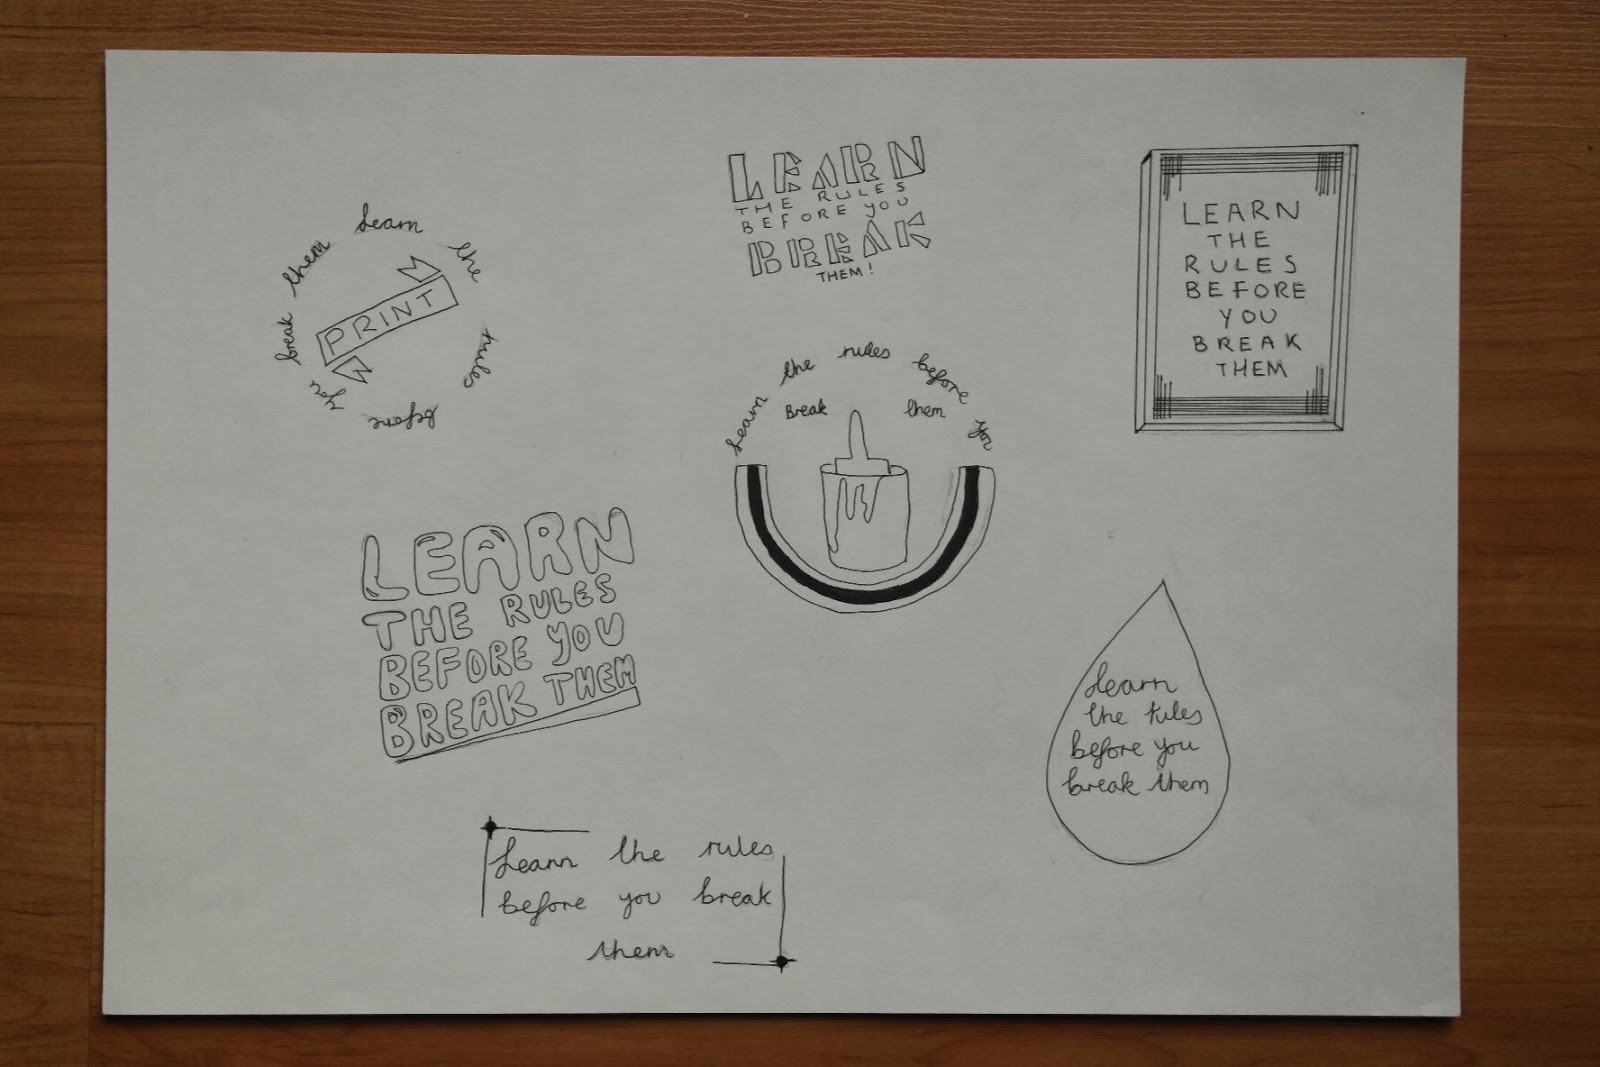 Learn the rules before you break them
PRINT
LEARN
THE RULES
BEFORE YOU
BREAK
THEM!
LEARN
THE
RULES
BEFORE
YOU
BREAK
THEM
Learn the rules before you
Break them
LEARN
THE RULES
BEFORE YOU
BREAK THEM
Learn
the rules
before you
break them
Learn the rules
before you break
them